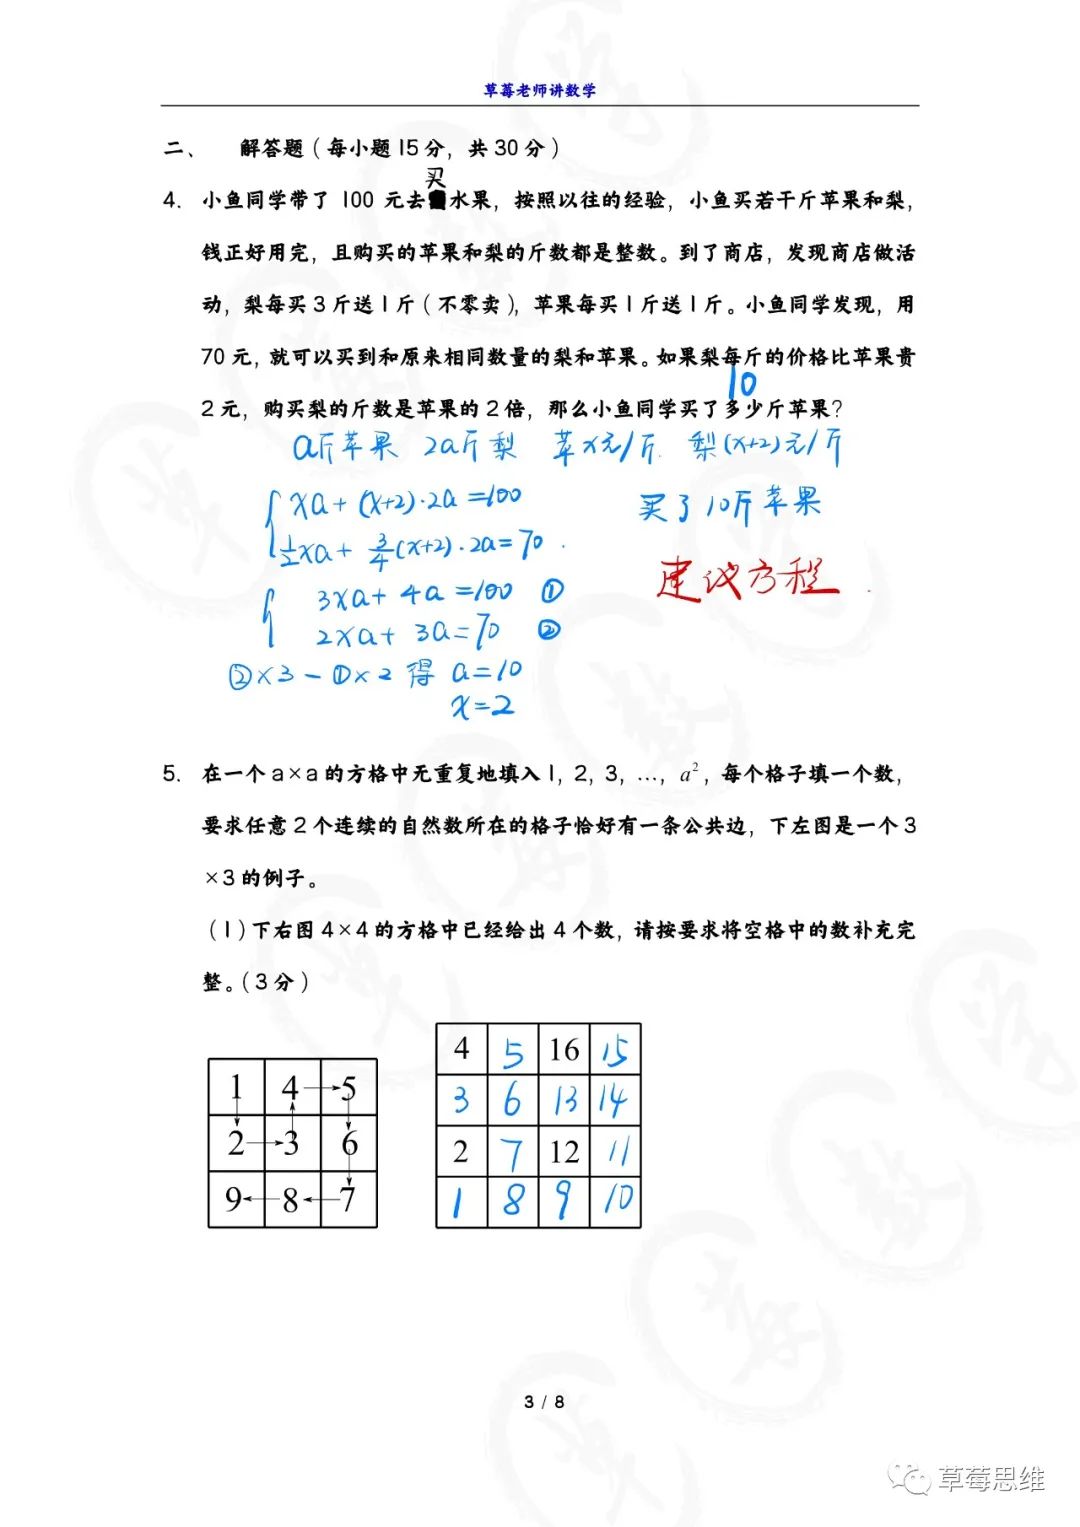 草莓老师讲数学
二、 解答题（每小题15分，共30分）
买
4. 小鱼同学带了 100 元去水果，按照以往的经验，小鱼买若干斤苹果和梨，
钱正好用完，且购买的苹果和梨的斤数都是整数。到了商店，发现商店做活
动，梨每买3斤送1斤（不零卖），苹果每买1斤送1斤。小鱼同学发现，用
70元，就可以买到和原来相同数量的梨和苹果。如果梨每斤的价格比苹果贵
2元，购买梨的斤数是苹果的2倍，那么小鱼同学买了多少斤苹果？
10
a斤苹果 2a斤梨 苹x元/斤 梨(x+2)元/斤
xa+(x+2)·2a=100
买了10斤苹果
1/2xa+3/4(x+2)·2a=70
建议方程
3xa+4a=100 ①
2xa+3a=70 ②
②×3-①×2 得 a=10
x=2
5. 在一个a×a的方格中无重复地填入1，2，3，…，a²，每个格子填一个数，
要求任意2个连续的自然数所在的格子恰好有一条公共边，下左图是一个3
×3的例子。
（1）下右图4×4的方格中已经给出4个数，请按要求将空格中的数补充完
整。（3分）
1 4 5
2 3 6
9 8 7
4 5 16 15
3 6 13 14
2 7 12 11
1 8 9 10
3 / 8
草莓思维